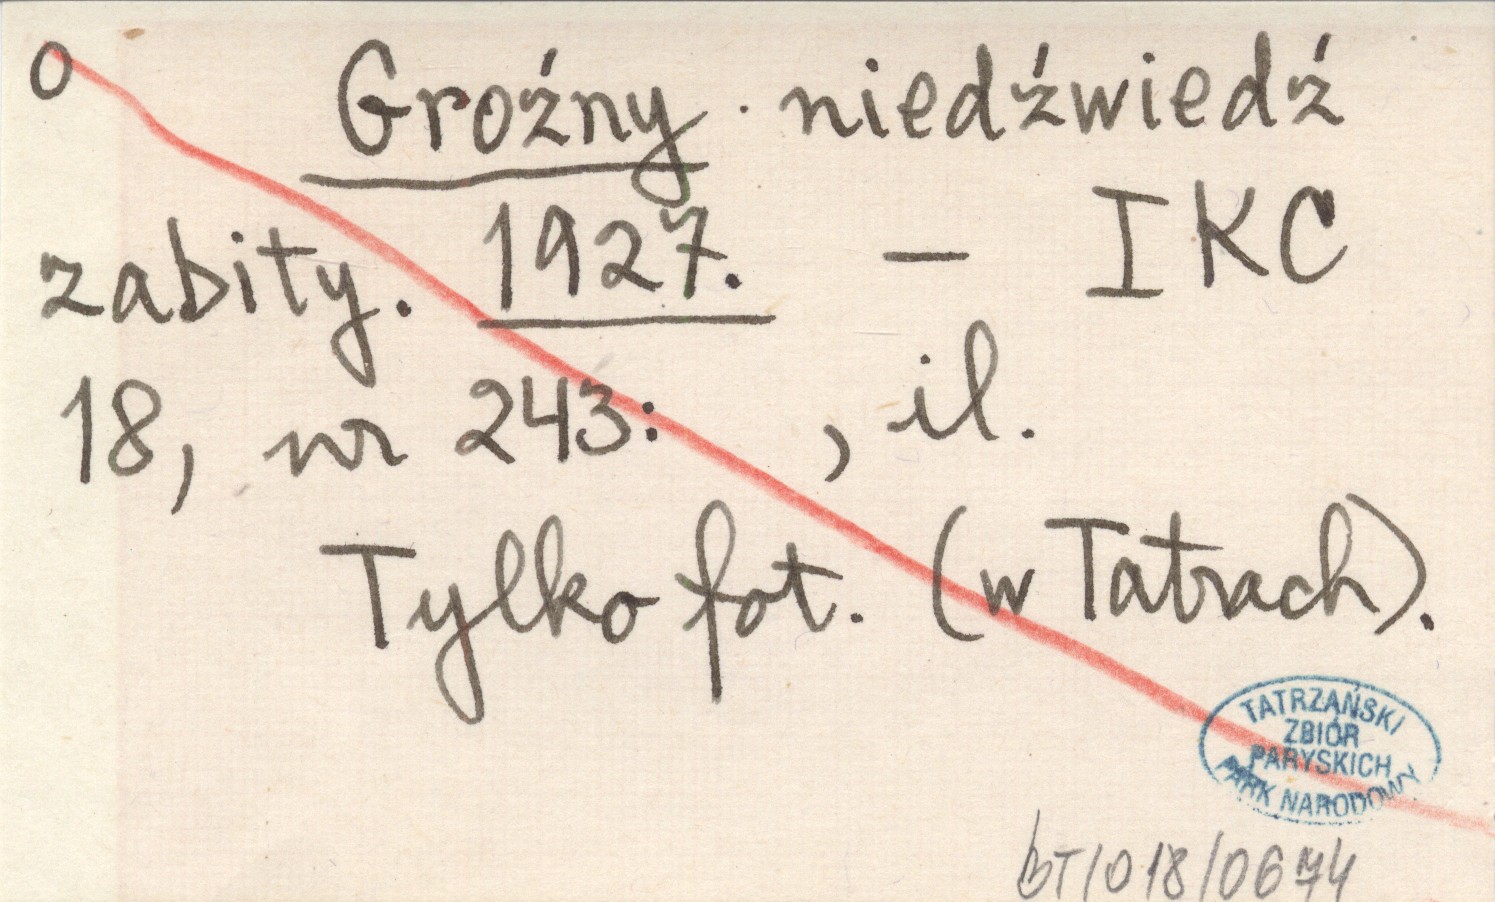 O Groźny niedźwiedź
zabity. 1927. — IKC
18, nr 243: , il.
Tylko fot. (w Tatrach).
TATRZAŃSKI
ZBIÓR
PARYSKICH
PARK NARODOWY
BT/018/0674